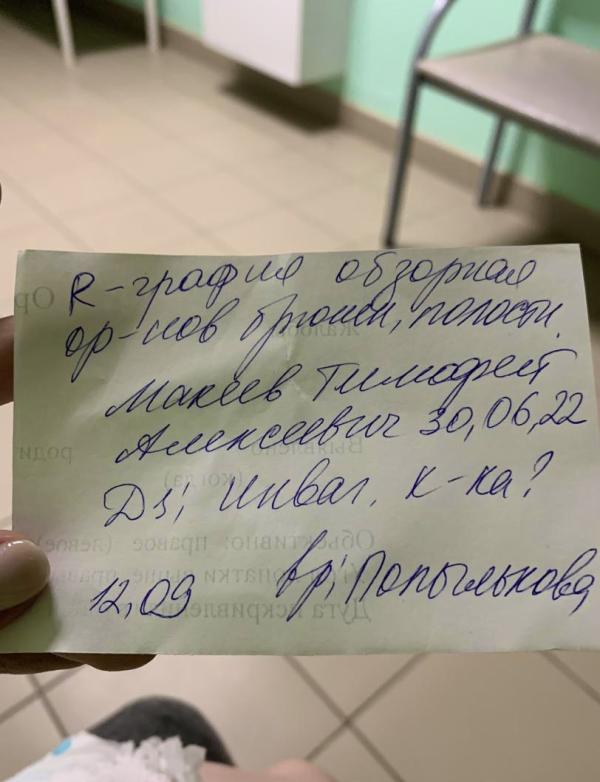 R-графия обзорная
ор-нов брюшн, полости.
Макеев Тимофей
Алексеевич 30,06,22
Ds; инваг. к-ка?
12,09 вр; Попылькова